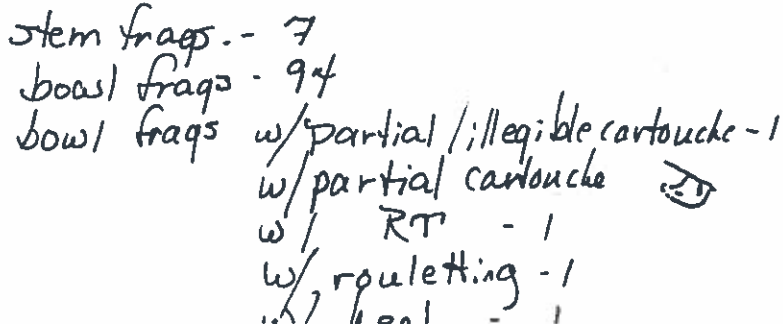 stem frags. - 7
bowl frags - 94
bowl frags w/partial/illegible cartouche - 1
w/partial cartouche
w/ RT - 1
w/ rouletting - 1
w/ - 1